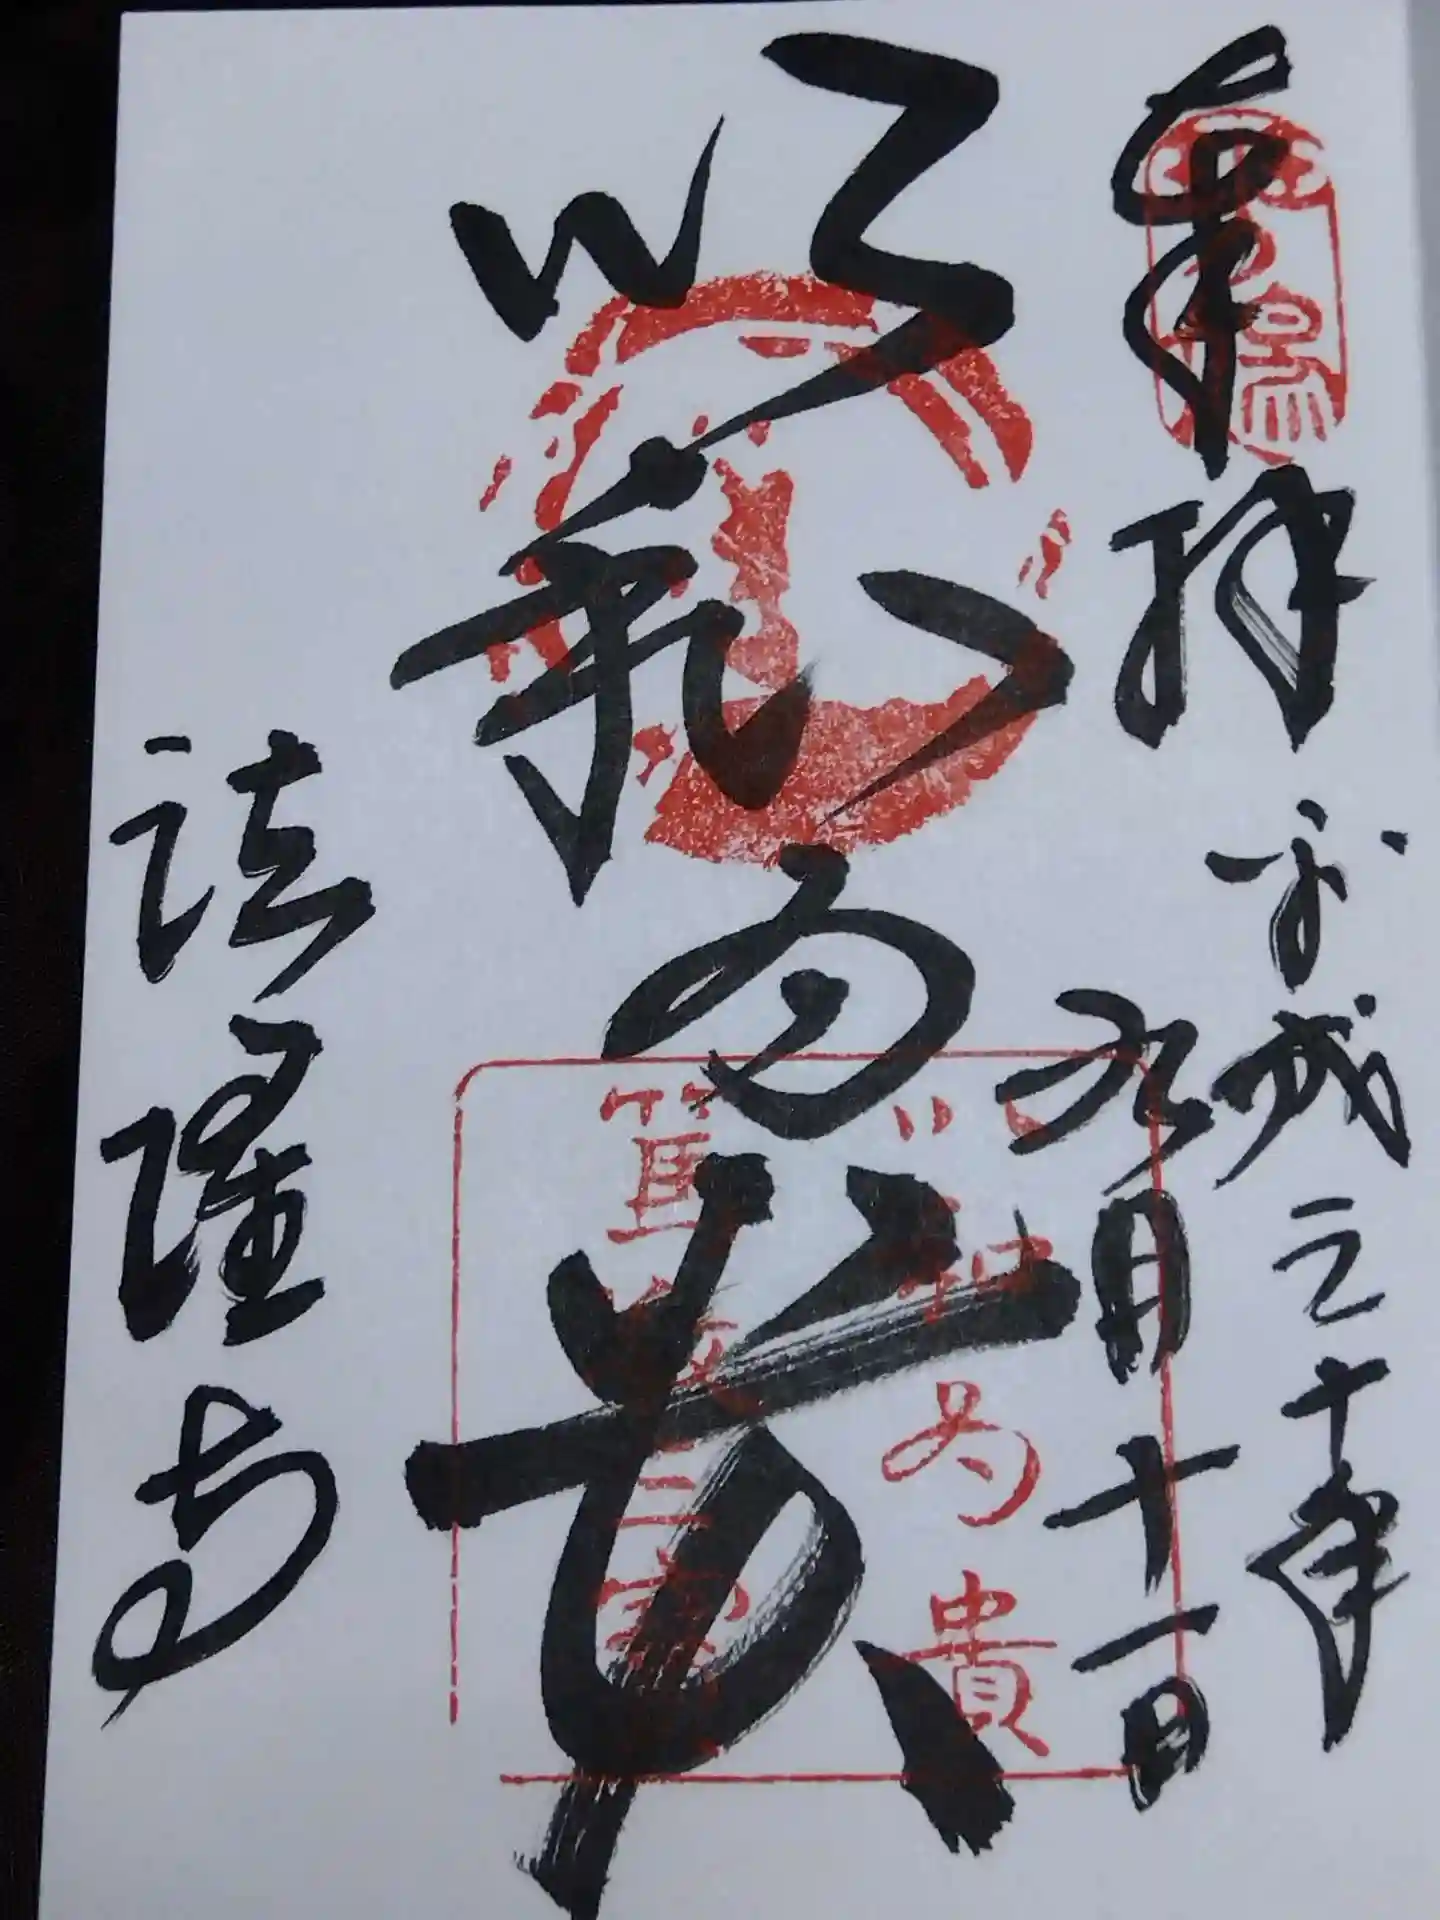 奉拝
平成二十年
九月十一日
以和為貴
以和為貴
篤敬三寳
法隆寺